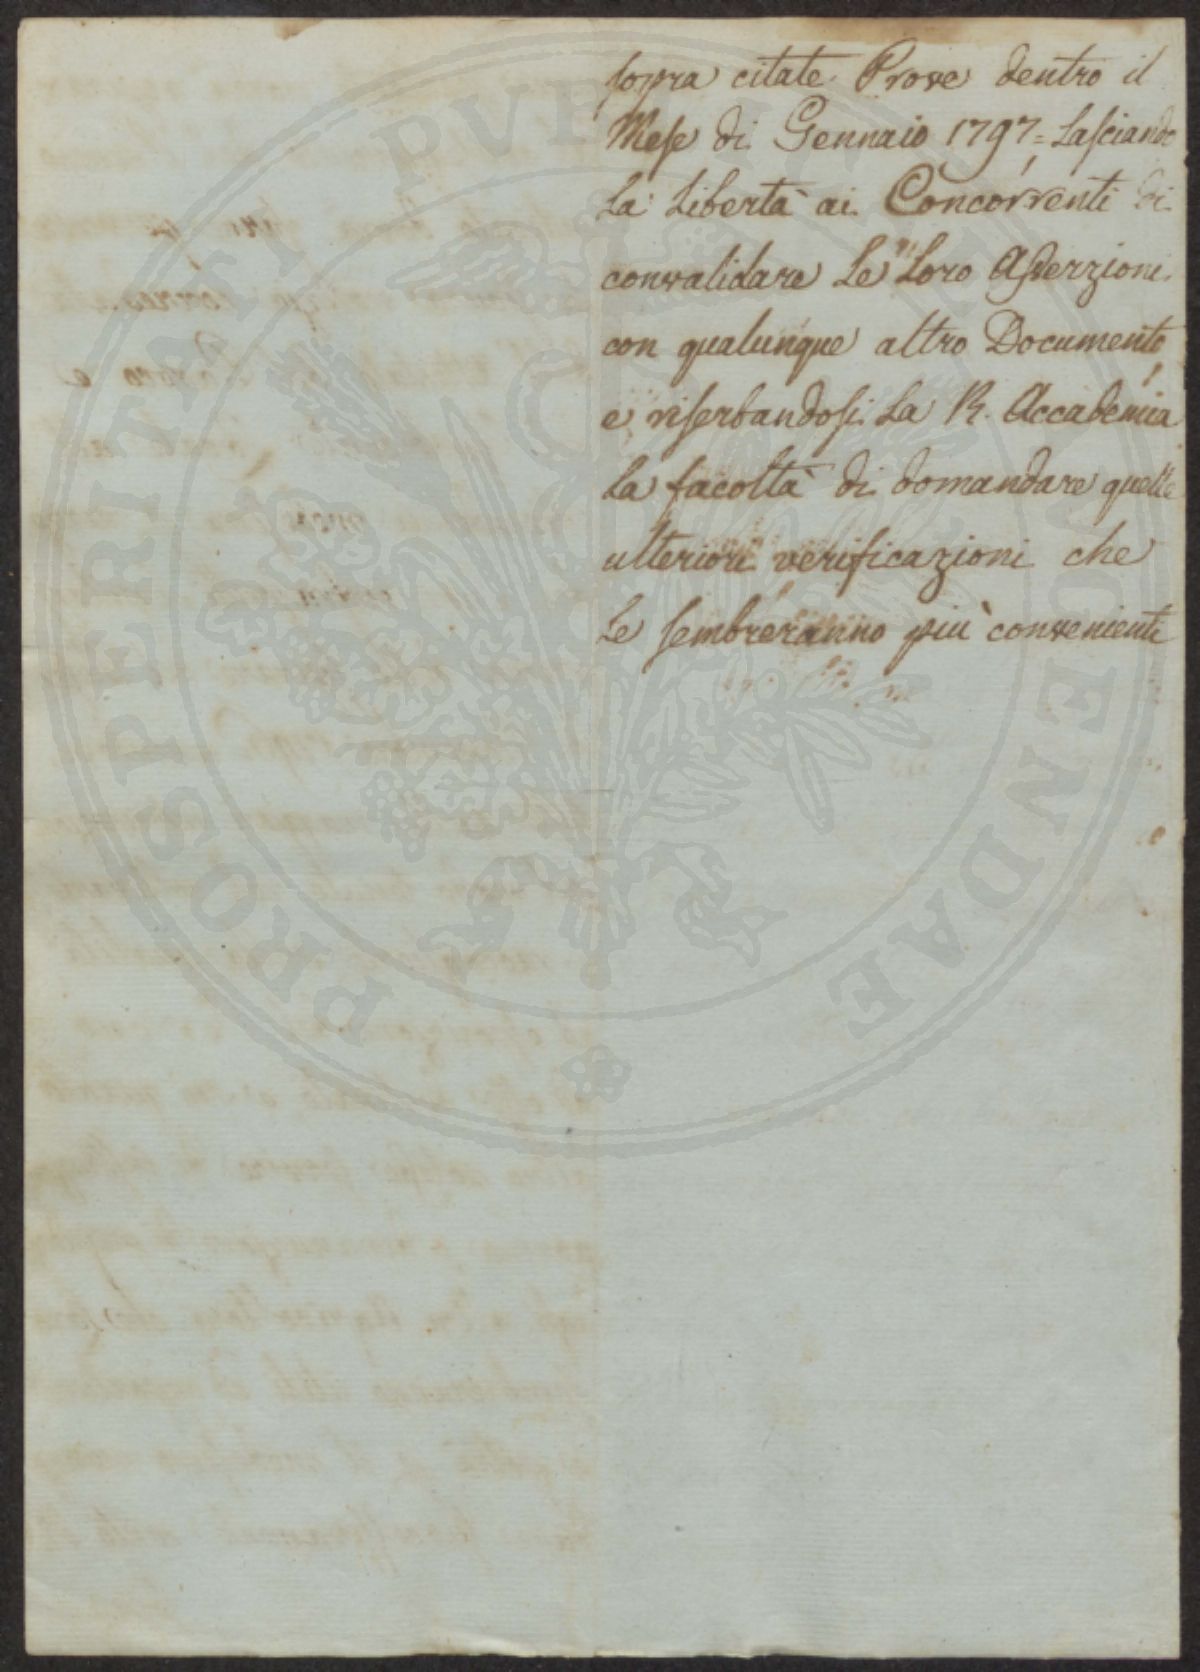 sopra citate Prove dentro il
Mese di Gennaio 1797= Lasciando
La Libertà ai Concorrenti di
convalidare Le Loro Asserzioni
con qualunque altro Documento,
e riserbandosi La R. Accademia
La facoltà di domandare quelle
ulteriori verificazioni che
Le sembreranno più convenienti
PROSPERITATI PUBLICAE AUGENDAE